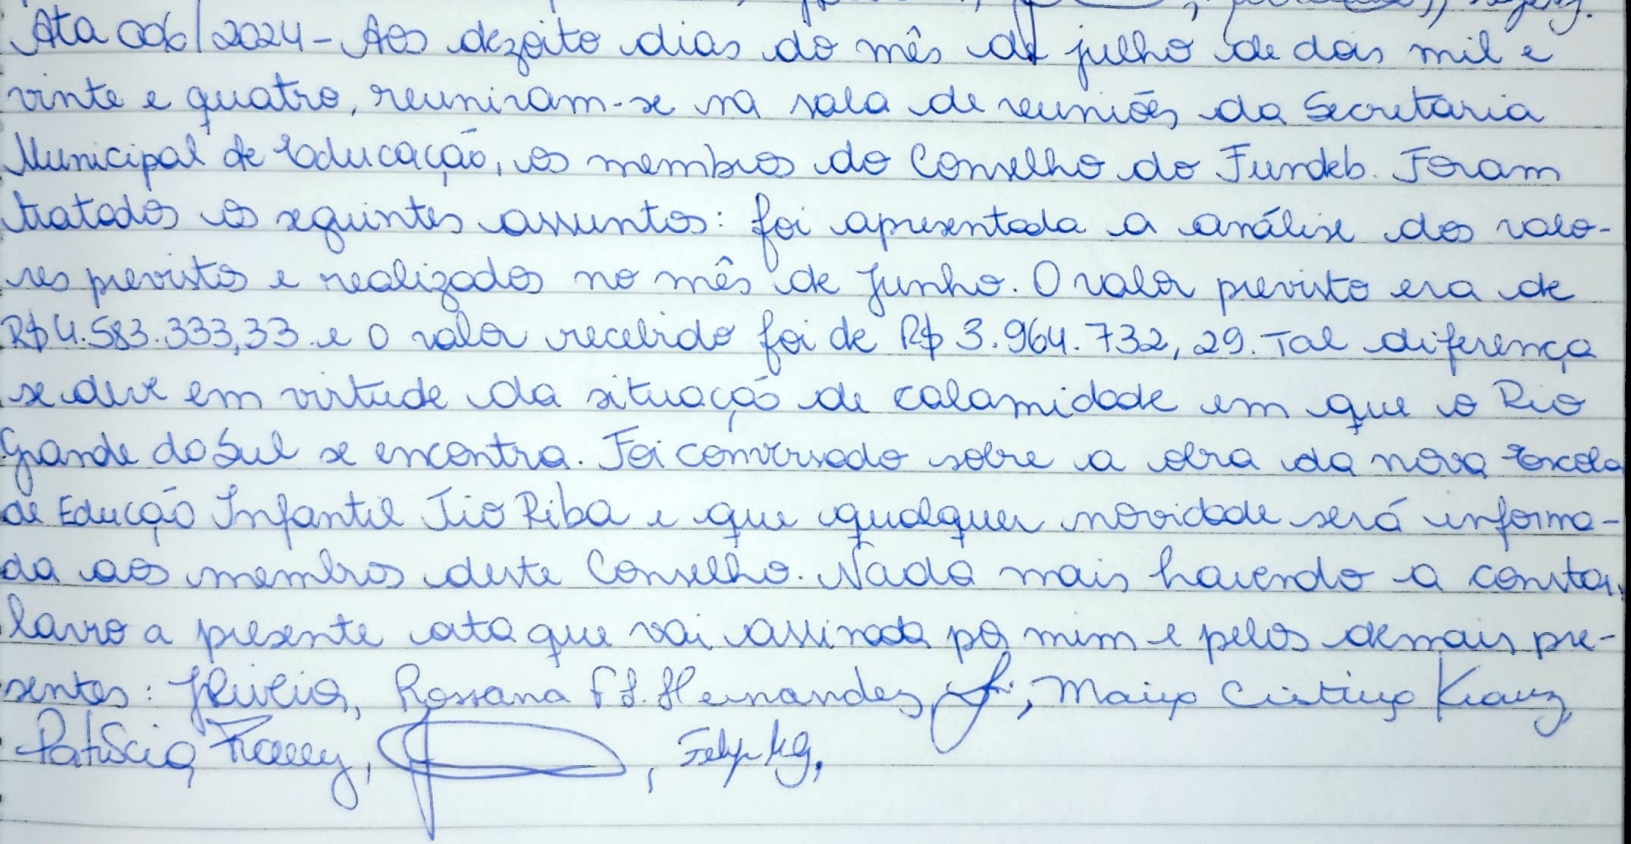 Ata 006/2024 - Aos dezoito dias do mês de julho de dois mil e
vinte e quatro, reuniram-se na sala de reuniões da Secretaria
Municipal de Educação, os membros do Conselho do Fundeb. Foram
tratados os seguintes assuntos: foi apresentada a análise dos valo-
res previstos e realizados no mês de Junho. O valor previsto era de
R$ 4.583.333,33 e o valor recebido foi de R$ 3.964.732,29. Tal diferença
se deve em virtude da situação de calamidade em que o Rio
Grande do Sul se encontra. Foi conversado sobre a obra da nova Escola
de Educção Infantil Tio Riba e que qualquer novidade será informa-
da aos membros deste Conselho. Nada mais havendo a constar,
lavro a presente ata que vai assinada por mim e pelos demais pre-
sentes: Rossana Hernandes,
Patrícia